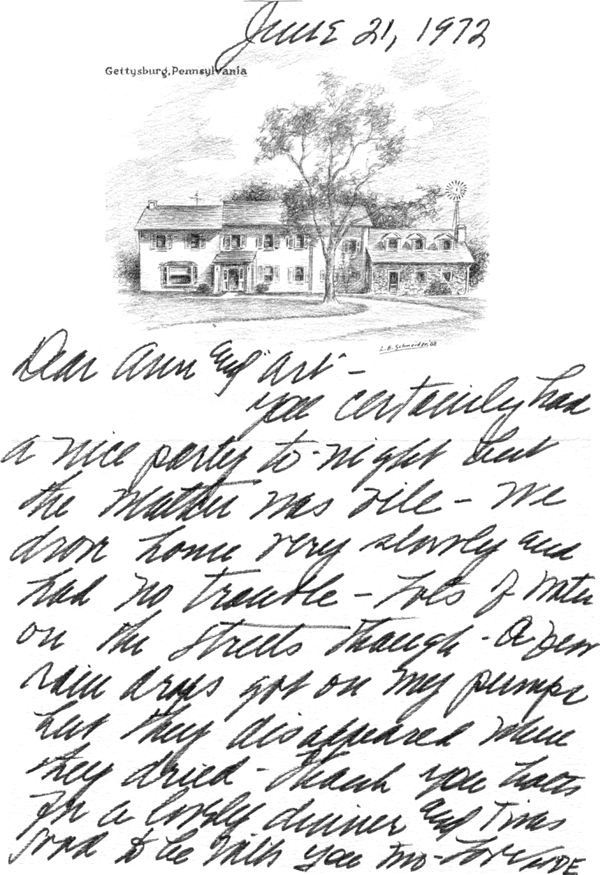 June 21, 1972
Gettysburg, Pennsylvania
Dear Ann and "Art" –
You certainly had
a nice party to-night but
the weather was vile – We
drove home very slowly and
had no trouble – lots of water
on the streets though – A few
rain drops got on my pumps
but they disappeared when
they dried – Thank you lots
for a lovely dinner and 'twas
good to be with you two – Love MDE